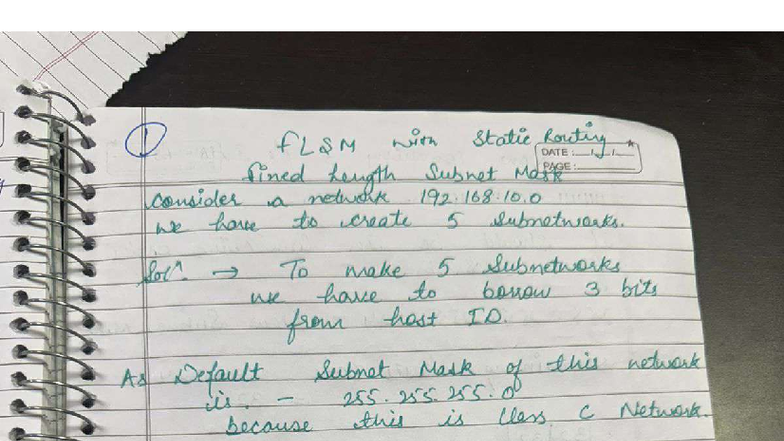 1
FLSM with Static Routing
DATE: __/__/__
PAGE: ____
fined Length Subnet Mask
consider a network 192.168.10.0
we have to create 5 Subnetworks.
Solⁿ → To make 5 Subnetworks
we have to borrow 3 bits
from host ID.
As Default Subnet Mask of this network
is. - 255.255.255.0
because this is Class C Network.